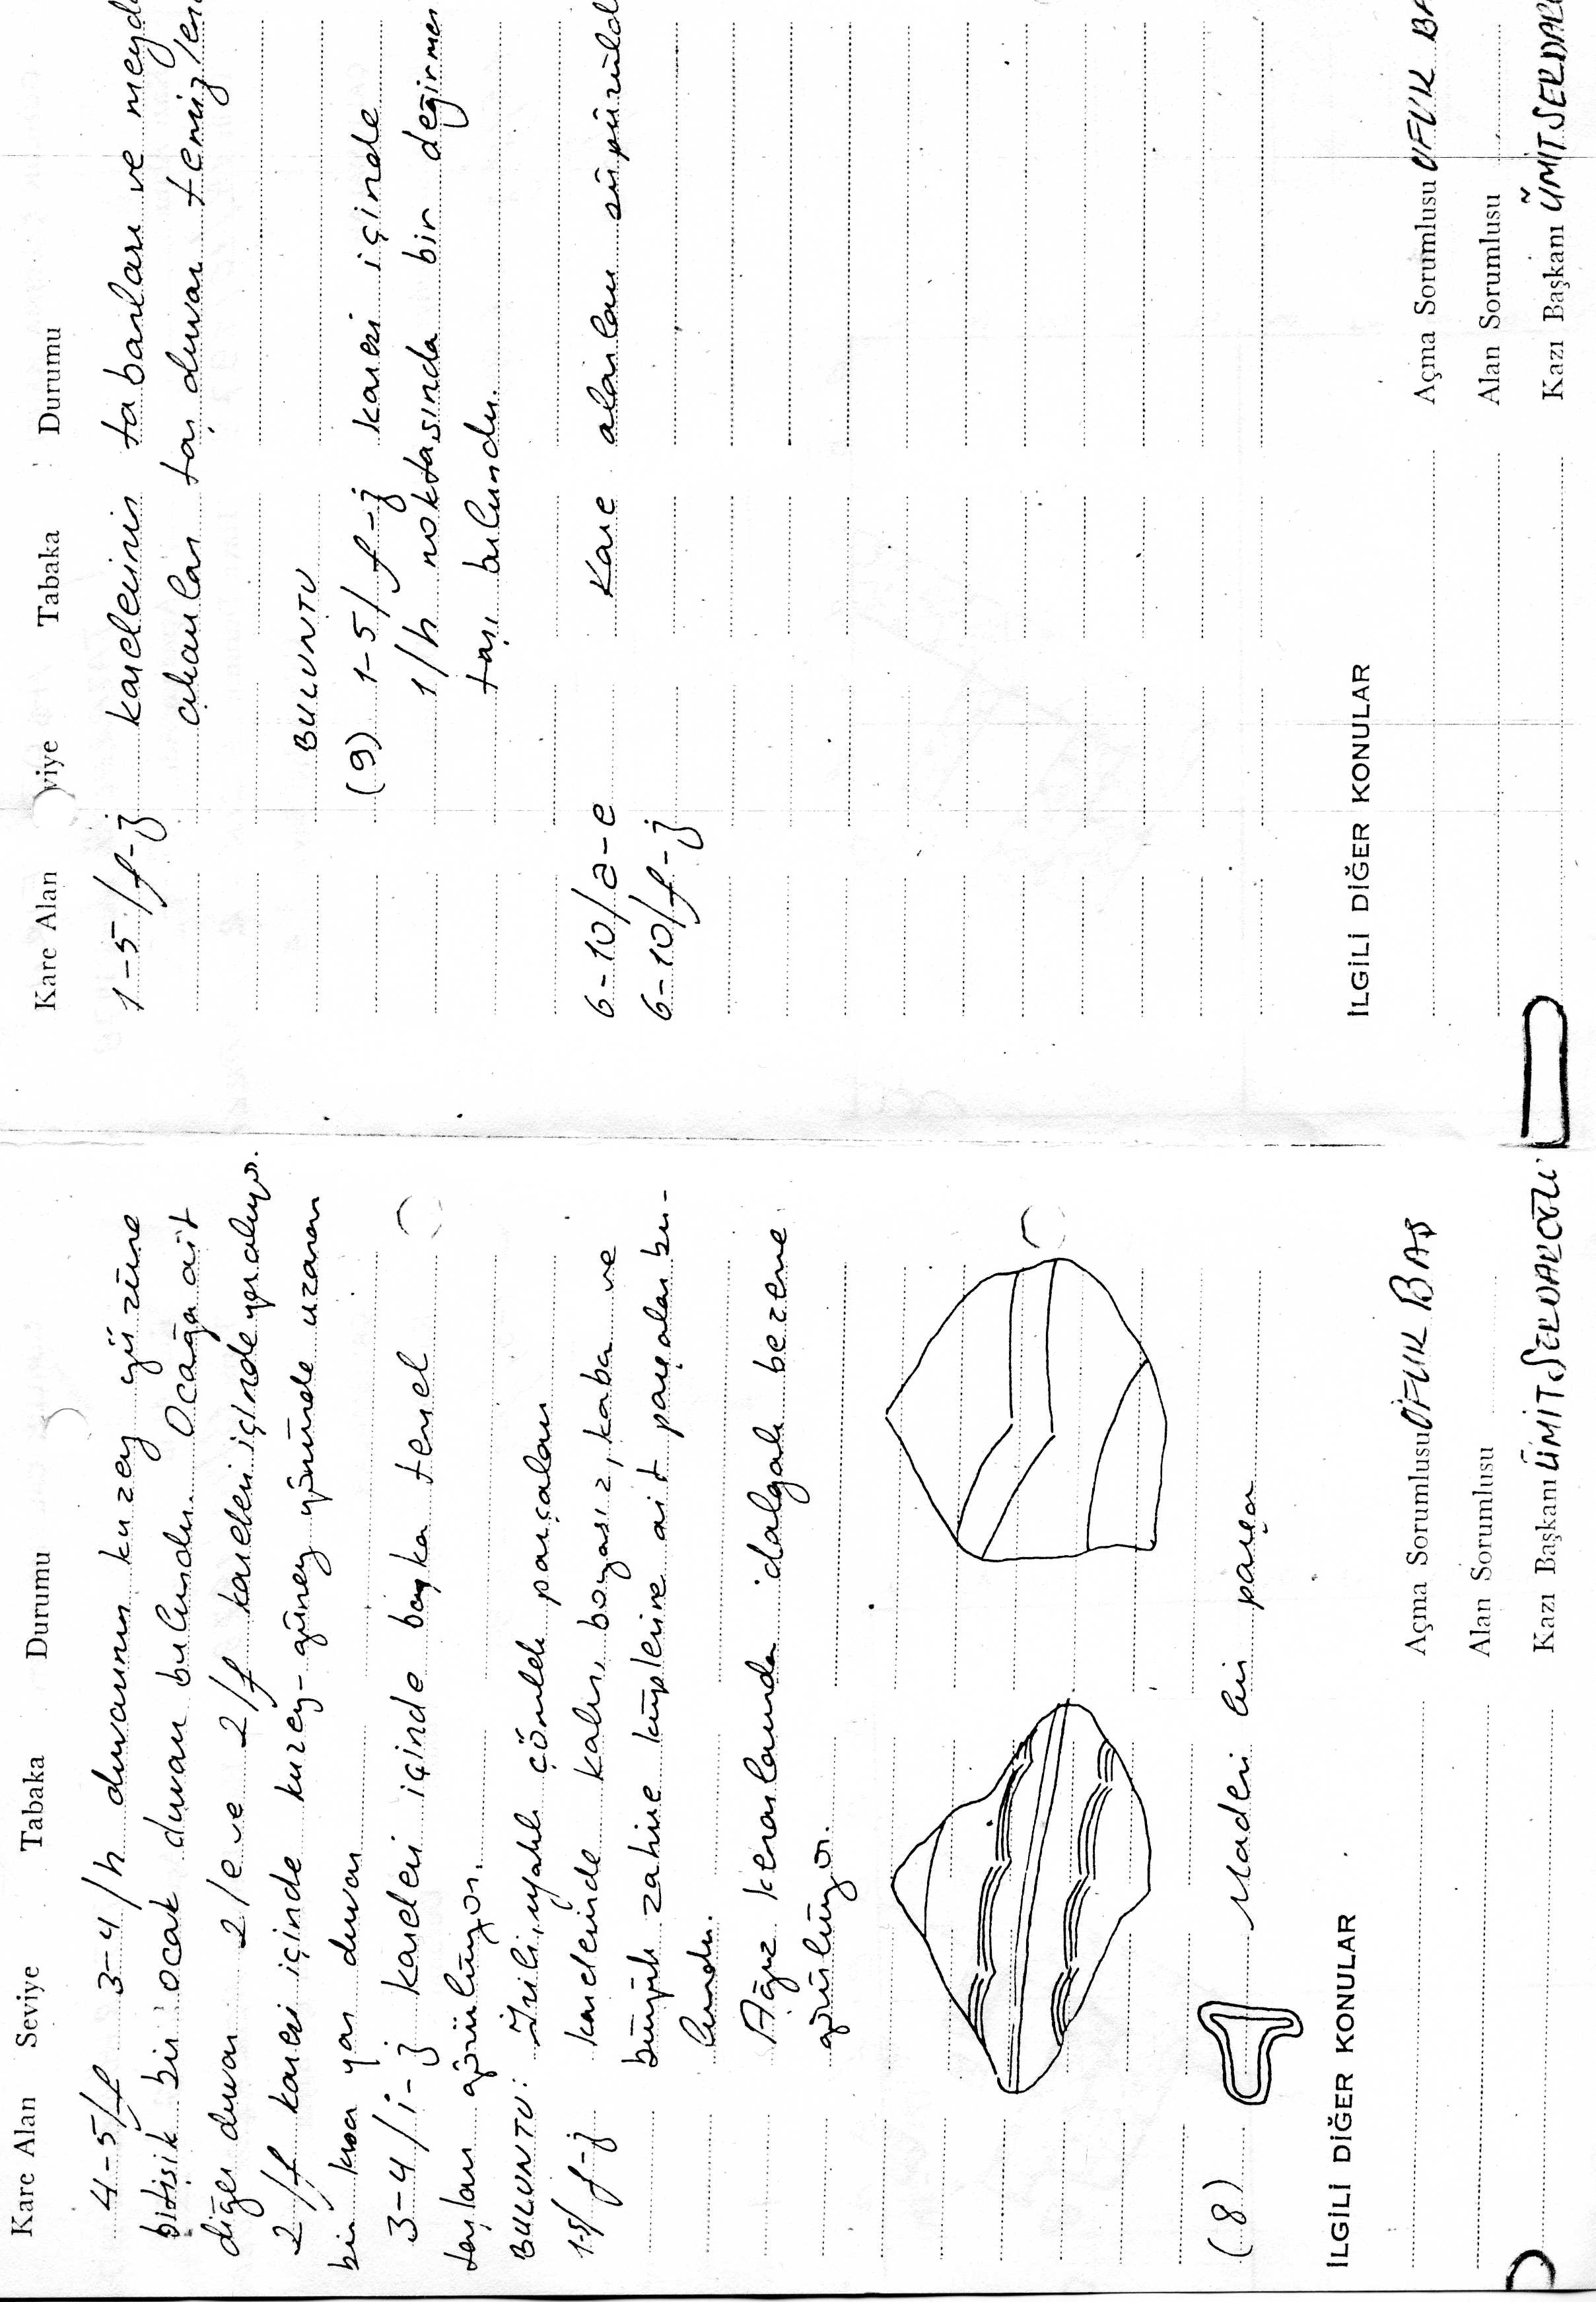 Kare Alan Seviye Tabaka Durumu
4-5/f 3-4/h duvarının kuzey yüzüne
bitişik bir ocak duvarı bulundu. Ocağa ait
diğer duvar 2/e ve 2/f kareleri içinde yer alıyor.
2/f karesi içinde kuzey-güney yönünde uzanan
bir kısa yan duvar
3-4/i-j kareleri içinde başka temel
taşları görülüyor.
BULUNTU: İrili, ufaklı çömlek parçaları
1-5/f-j karelerinde kalın, boyasız, kaba ve
büyük zahire küplerine ait parçalar bu-
lundu.
Ağız kenarlarında dalgalı bezeme
görülüyor.
(8) Madeni bir parça
İLGİLİ DİĞER KONULAR
Açma Sorumlusu UFUK BAŞ
Alan Sorumlusu
Kazı Başkanı ÜMİT SERDAROĞLU
Kare Alan viye Tabaka Durumu
1-5/f-j karelerinin tabanları ve meyd
çıkarılan taş duvarı temizlen
BULUNTU
(9) 1-5/f-j karesi içinde
1/h noktasında bir değirmen
taşı bulundu.
6-10/a-e Kare alanları süpürüld
6-10/f-j
İLGİLİ DİĞER KONULAR
Açma Sorumlusu UFUK BA
Alan Sorumlusu
Kazı Başkanı ÜMİT SERDAR